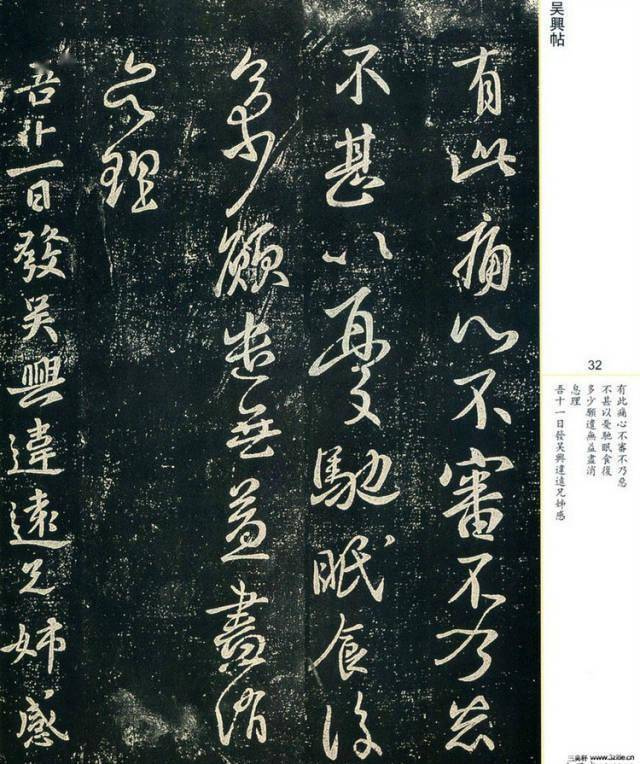 吳興帖
有此痛心不審不乃惡
不甚以憂馳眠食復
多少願遣無益盡消
息理
吾十一日發吳興違遠兄姊感
32
有此痛心不審不乃惡
不甚以憂馳眠食復
多少願遣無益盡消
息理
吾十一日發吳興違遠兄姊感
三吳軒 www.3zitie.cn